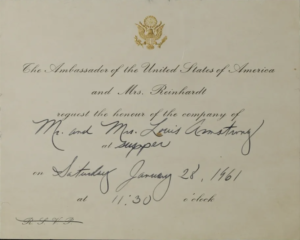 The Ambassador of the United States of America
and Mrs. Reinhardt
request the honour of the company of
Mr. and Mrs. Louis Armstrong
at supper
on Saturday January 28, 1961
at 11:30 o'clock
R.S.V.P.